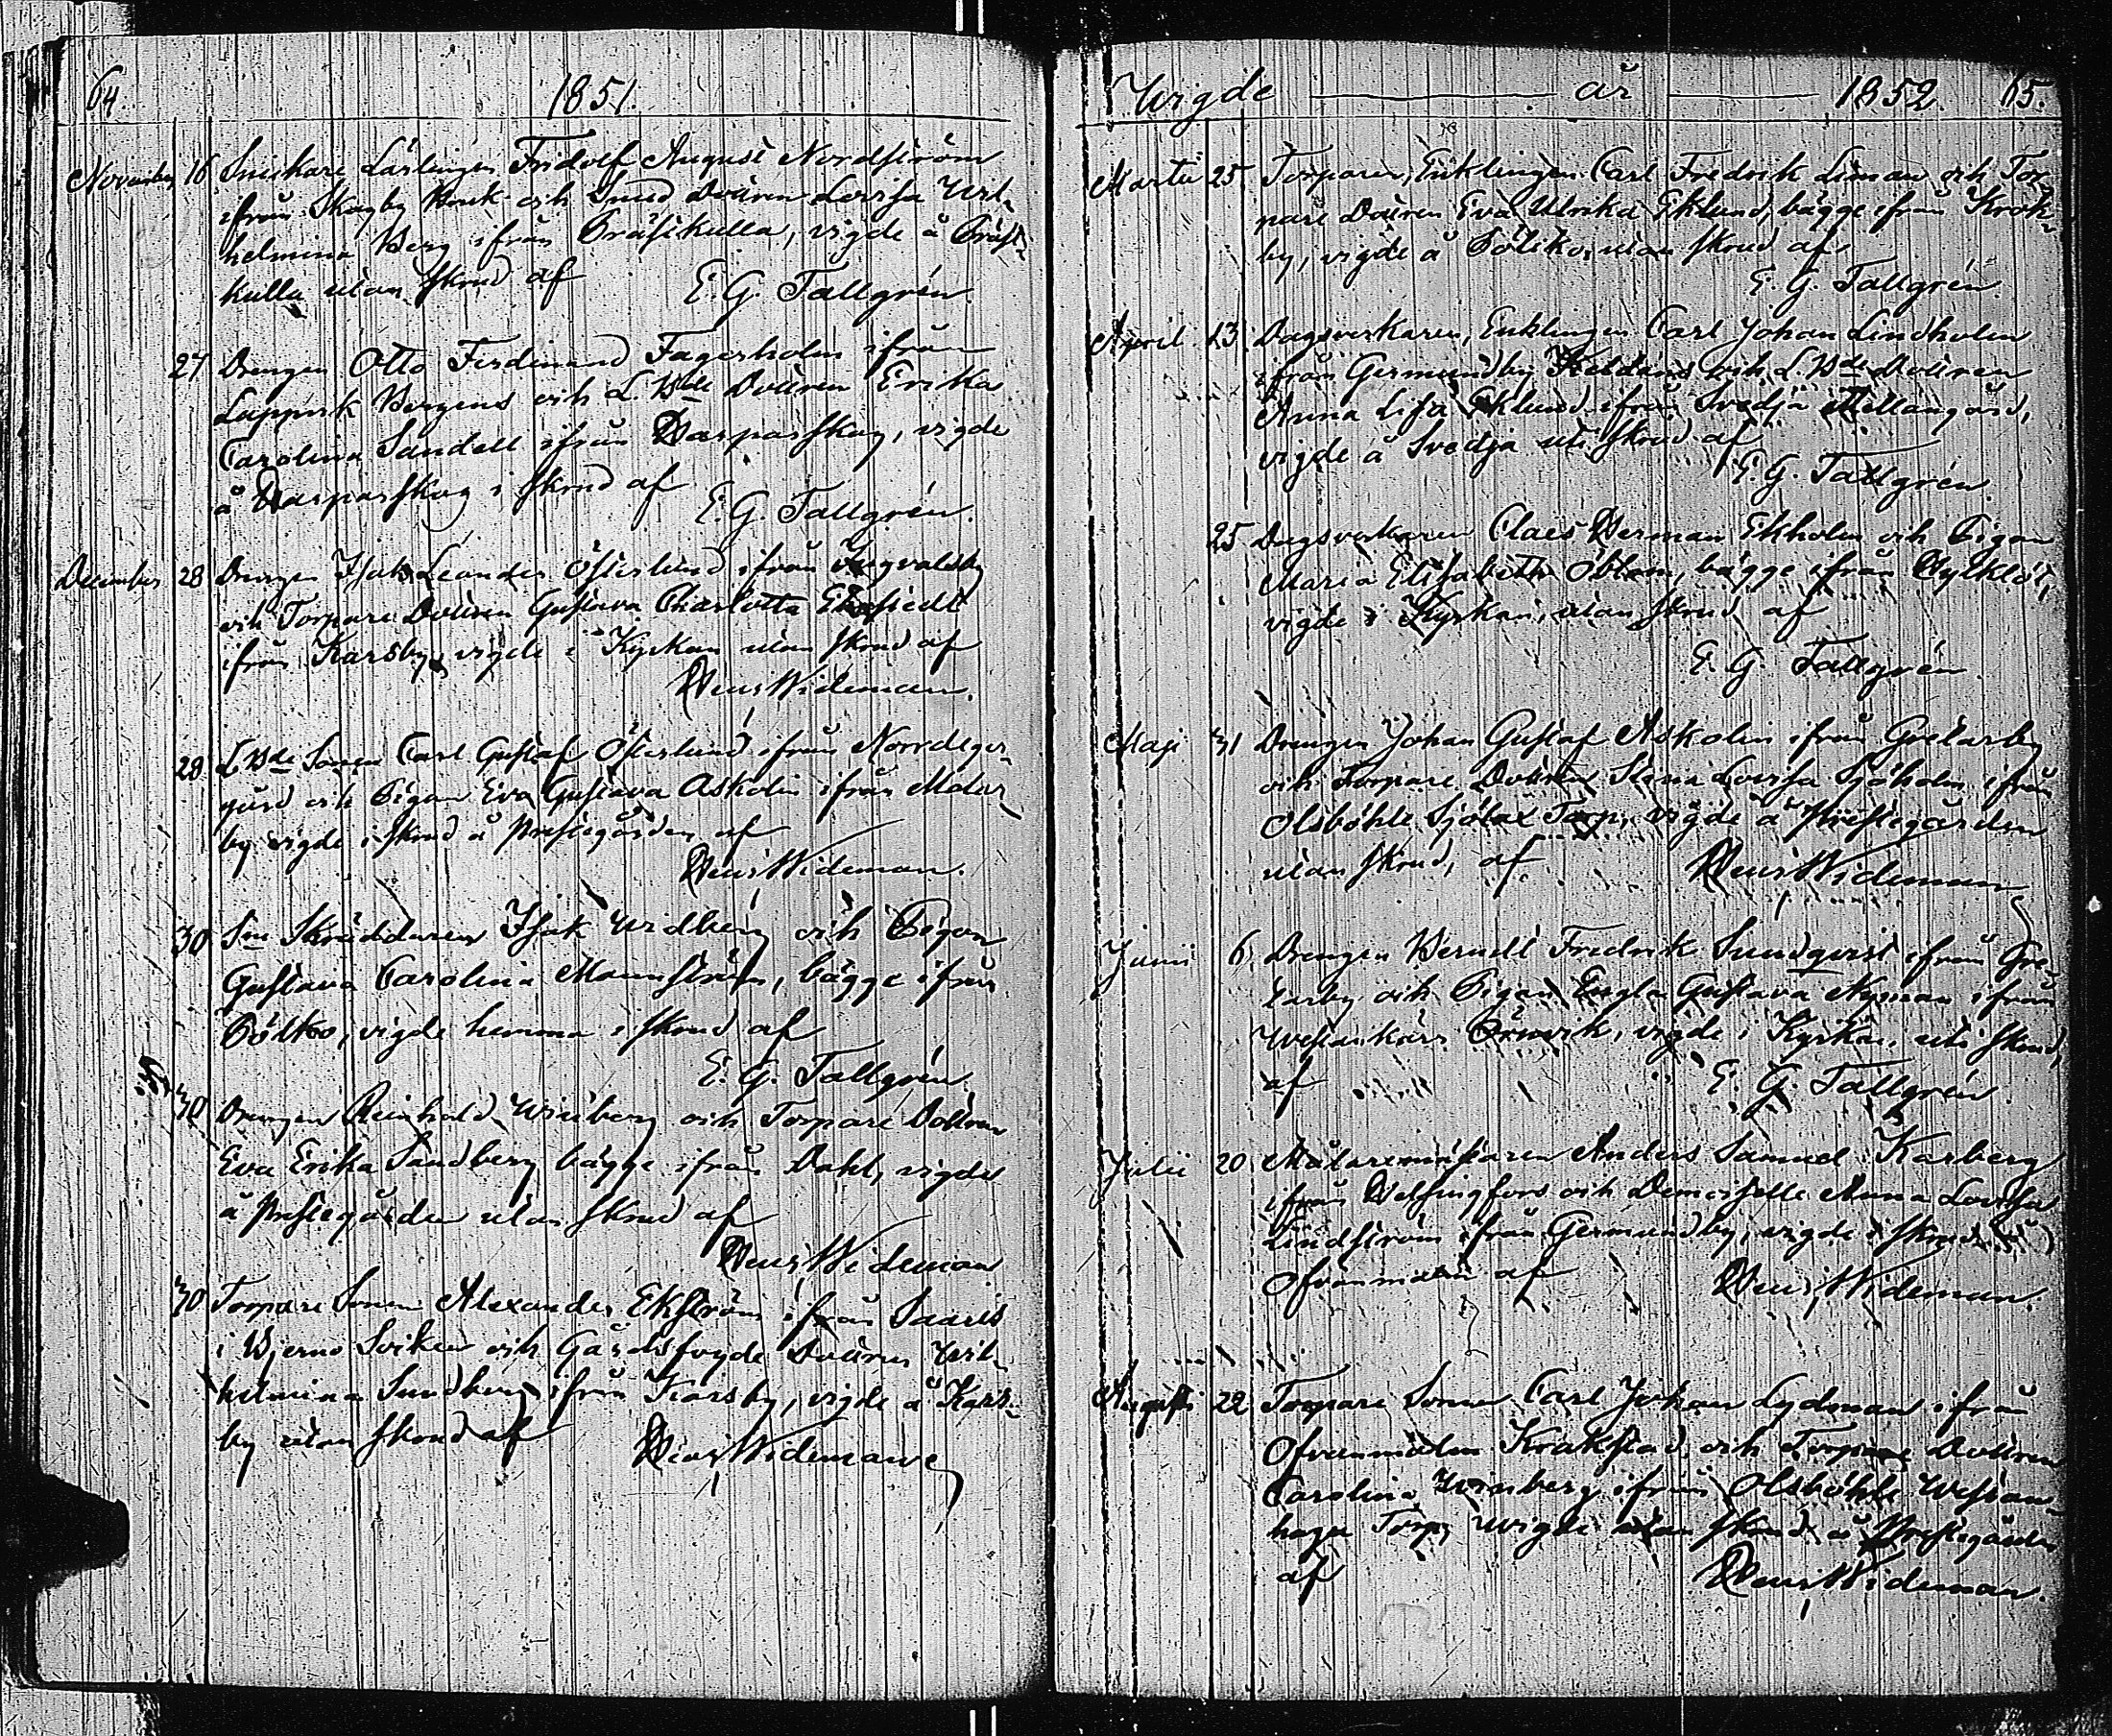 64 1851.
November 16 Snickare Lärlingen Fridolf August Nordström
ifrån Skogby Bruk och Smed Dottren Lovisa Wil-
helmina Berg ifrån Präsikulla, vigde å Präst-
kulla utan skrud af E. G. Tallgrén.
27 Drengen Otto Ferdinand Fagerholm ifrån
Lappvik Bergens och L. Bde Dottren Erika
Carolina Sandell ifrån Harparskog, vigde
å Harparskog i skrud af
E. G. Tallgrén.
December 28 Drengen Isak Leander Österlund ifrån Ingvaldsby
och Torpare Dottren Gustava Charlotta Ekstedt
ifrån Karsby, vigde i Kyrkan utan skrud af
Henr Wideman.
28 L. Bde Sonen Carl Gustaf Österlund ifrån Norrdeger-
gård och Pigan Eva Gustava Askolin ifrån Molar-
by vigde i skrud å Prestegården af
Henr Wideman.
30 Sn Skräddaren Isak Widberg och Pigan
Gustava Carolina Mannström, bägge ifrån
Böltso, vigde hemma i skrud af
E. G. Tallgrén
30 Drengen Reinhold Winberg och Torpare Dottren
Eva Erika Sandberg bägge ifrån Dahl, vigde
å Prestegården utan skrud af
Henr Wideman
30 Torpare Sonen Alexander Ekström ifrån Saaris
i Bjerno Socken och Gårdsfogde Dottren Wil-
helmina Sundberg ifrån Karsby, vigde å Kars-
by utan skrud af Henr Wideman
Wigde år 1852 65.
Martii 25 Torparen, Enklingen Carl Fredrik Liman och Tor-
pare Dottren Eva Ulrika Eklund, bägge ifrån Krok-
by, vigde å utan skrud af
E. G. Tallgrén.
April 13 Dagsverkaren, Enklingen Carl Johan Lindholm
ifrån Germundby och L. Bde Dottren
Anna Lisa Eklund ifrån Svedja Mellangård,
vigde å Svedja uti skrud af
E. G. Tallgrén.
25 Dagsverkaren Claes Herman Ekholm och Pigan
Maria Elisabeth Öblom, bägge ifrån
vigde i Kyrkan, utan skrud af
E. G. Tallgrén
Maji 31 Drengen Johan Gustaf Askolin ifrån Gretarby
och Torpare Dottren Stina Lovisa Sjöholm ifrån
Olsböhle Sjölax Torp, vigde å Prestegården
utan skrud, af Henr Wideman
Junii 6 Drengen Berndt Fredrik Sundqvist ifrån Gre-
tarby och Pigan Engla Gustava Nyman ifrån
Westankärr Örnvik, vigde i Kyrkan uti skrud,
af E. G. Tallgrén
Julii 20 Målaremästaren Anders Samuel Karberg
ifrån Helsingfors och Demoiselle Anna Lovisa
Lindström ifrån Germundby, vigde i skrud å
Ofvanmalm af Henr Wideman.
Augusti 22 Torpare Sonen Carl Johan Lydman ifrån
Ofvanmalm Krakstad och Torpare Dottren
Carolina Winberg ifrån Olsböhle Westan-
haga Torp, wigde utan skrud å Prestegården
af Henr Wideman.